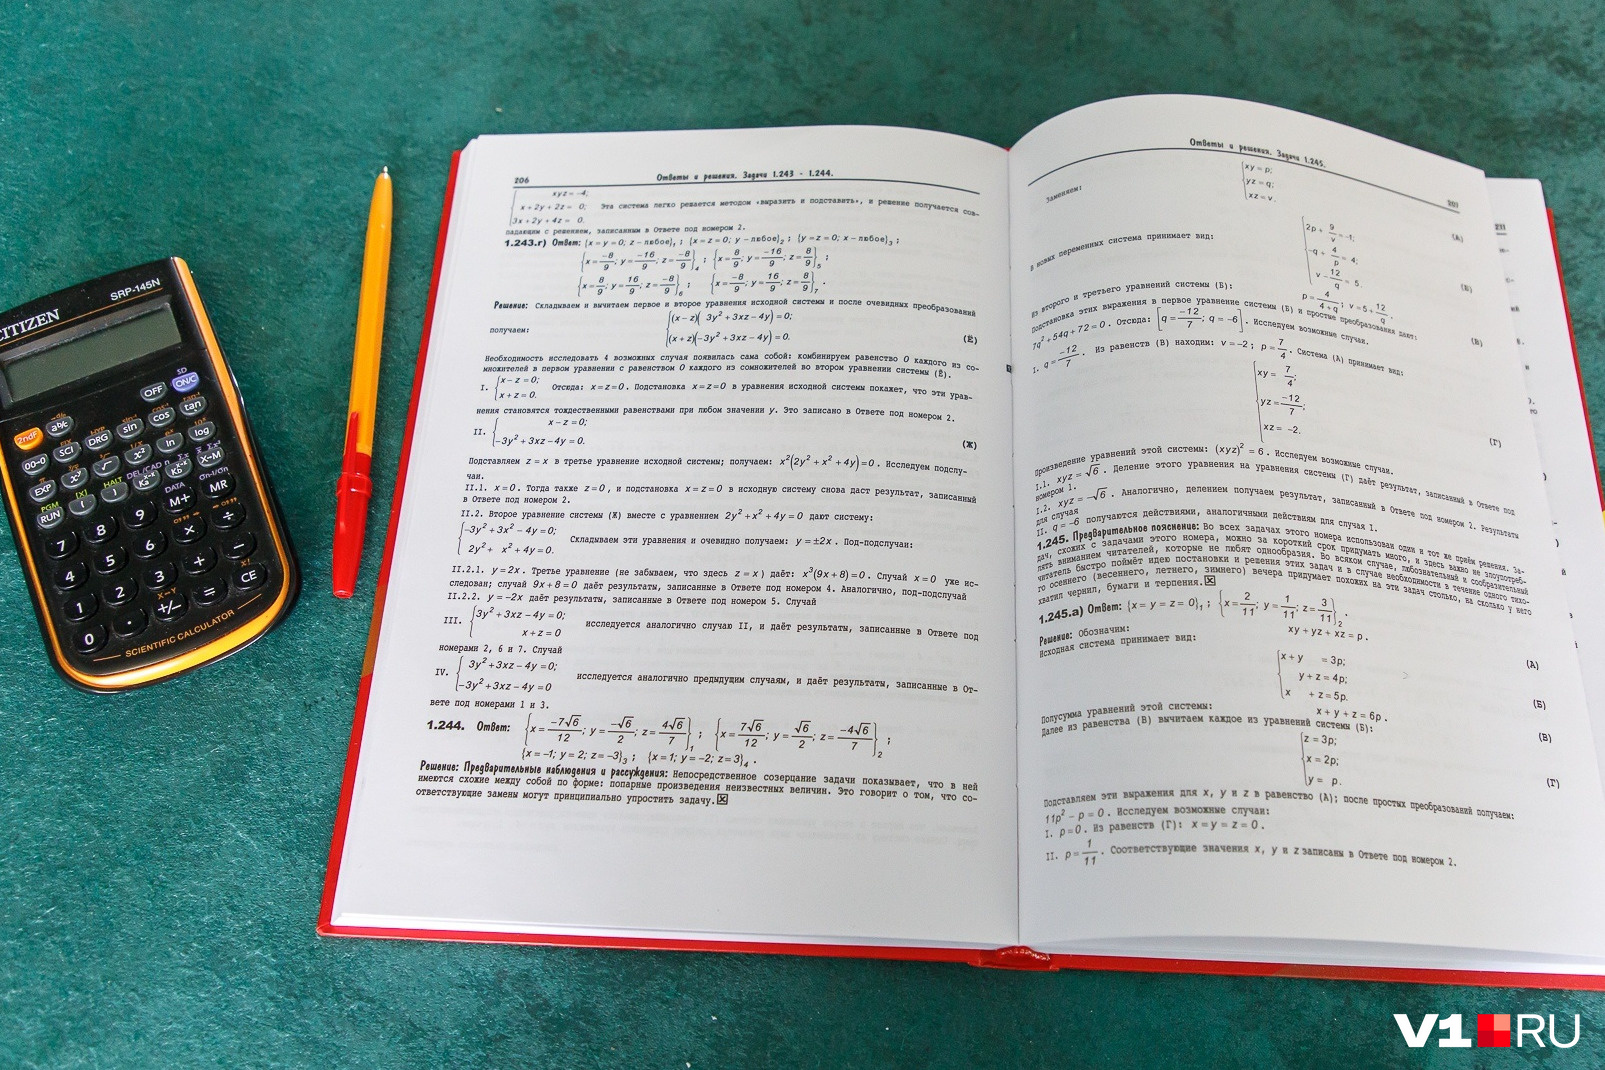 CITIZEN
SRP-145N
SD
OFF
ON/C
2ndF
ab/c
sin
cos
tan
00→0
SCI
DRG
x²
ln
log
EXP
X→M
PGM
HALT
DEL/CAD
DATA
RUN
M+
MR
7 8 9 × ÷
4 5 6 + −
1 2 3 = CE
0 . +/−
SCIENTIFIC CALCULATOR
206
Ответы и решения. Задачи 1.243 - 1.244.
xyz = -4;
x + 2y + 2z = 0; Эта система легко решается методом «выразить и подставить», и решение получается сов-
3x + 2y + 4z = 0.
падающим с решением, записанным в Ответе под номером 2.
1.243.г) Ответ: {x = y = 0; z - любое}₁; {x = z = 0; y - любое}₂; {y = z = 0; x - любое}₃;
{x = -8/9; y = -16/9; z = -8/9}₄; {x = 8/9; y = -16/9; z = 8/9}₅;
{x = 8/9; y = 16/9; z = -8/9}₆; {x = -8/9; y = 16/9; z = 8/9}₇.
Решение: Складываем и вычитаем первое и второе уравнения исходной системы и после очевидных преобразований
получаем:
(x - z)( 3y² + 3xz - 4y) = 0;
(x + z)(-3y² + 3xz - 4y) = 0. (Ё)
Необходимость исследовать 4 возможных случая появилась сама собой: комбинируем равенство 0 каждого из со-
множителей в первом уравнении с равенством 0 каждого из сомножителей во втором уравнении системы (Ё).
I. x - z = 0;
x + z = 0. Отсюда: x = z = 0. Подстановка x = z = 0 в уравнения исходной системы покажет, что эти урав-
нения становятся тождественными равенствами при любом значении y. Это записано в Ответе под номером 2.
II. x - z = 0;
-3y² + 3xz - 4y = 0. (Ж)
Подставляем z = x в третье уравнение исходной системы; получаем: x²(2y² + x² + 4y) = 0. Исследуем подслу-
чаи.
II.1. x = 0. Тогда также z = 0, и подстановка x = z = 0 в исходную систему снова даст результат, записанный
в Ответе под номером 2.
II.2. Второе уравнение системы (Ж) вместе с уравнением 2y² + x² + 4y = 0 дают систему:
-3y² + 3x² - 4y = 0;
2y² + x² + 4y = 0. Складываем эти уравнения и очевидно получаем: y = ±2x. Под-подслучаи:
II.2.1. y = 2x. Третье уравнение (не забываем, что здесь z = x) даёт: x³(9x + 8) = 0. Случай x = 0 уже ис-
следован; случай 9x + 8 = 0 даёт результаты, записанные в Ответе под номером 4. Аналогично, под-подслучай
II.2.2. y = -2x даёт результаты, записанные в Ответе под номером 5. Случай
III. 3y² + 3xz - 4y = 0;
x + z = 0 исследуется аналогично случаю II, и даёт результаты, записанные в Ответе под
номерами 2, 6 и 7. Случай
IV. 3y² + 3xz - 4y = 0;
-3y² + 3xz - 4y = 0 исследуется аналогично предыдущим случаям, и даёт результаты, записанные в От-
вете под номерами 1 и 3.
1.244. Ответ: {x = -7√6/12; y = -√6/2; z = 4√6/7}₁; {x = 7√6/12; y = √6/2; z = -4√6/7}₂;
{x = -1; y = 2; z = -3}₃; {x = 1; y = -2; z = 3}₄.
Решение: Предварительные наблюдения и рассуждения: Непосредственное созерцание задачи показывает, что в ней
имеются схожие между собой по форме: попарные произведения неизвестных величин. Это говорит о том, что со-
ответствующие замены могут принципиально упростить задачу.
Ответы и решения. Задачи 1.245.
207
Заменяем:
xy = p;
yz = q;
xz = v.
В новых переменных система принимает вид:
2p + 9/v = -1; (А)
-q + 4/p = 4;
v - 12/q = 5. (Б)
Из второго и третьего уравнений системы (Б): p = 4/(4+q); v = 5 + 12/q. (В)
Подстановка этих выражения в первое уравнение системы (Б) и простые преобразования дают:
7q² + 54q + 72 = 0. Отсюда: [q = -12/7; q = -6]. Исследуем возможные случаи.
I. q = -12/7. Из равенств (В) находим: v = -2; p = 7/4. Система (А) принимает вид:
xy = 7/4;
yz = -12/7;
xz = -2. (Г)
Произведение уравнений этой системы: (xyz)² = 6. Исследуем возможные случаи.
I.1. xyz = √6. Деление этого уравнения на уравнения системы (Г) даёт результат, записанный в Ответе под
номером 1.
I.2. xyz = -√6. Аналогично, делением получаем результат, записанный в Ответе под номером 2. Результаты
для случая
II. q = -6 получаются действиями, аналогичными действиям для случая I.
1.245. Предварительное пояснение: Во всех задачах этого номера использован один и тот же приём решения. За-
дач, схожих с задачами этого номера, можно за короткий срок придумать много, и здесь важно не злоупотреб-
лять вниманием читателей, которые не любят однообразия. Во всяком случае, любознательный и сообразительный
читатель быстро поймёт идею постановки и решения этих задач и в случае необходимости в течение одного тихо-
го осеннего (весеннего, летнего, зимнего) вечера придумает похожих на эти задач столько, на сколько у него
хватит чернил, бумаги и терпения.
1.245.а) Ответ: {x = y = z = 0}₁; {x = 2/11; y = 1/11; z = 3/11}₂.
Решение: Обозначим: xy + yz + xz = p. (А)
Исходная система принимает вид:
x + y = 3p;
y + z = 4p;
x + z = 5p. (Б)
Полусумма уравнений этой системы: x + y + z = 6p. (В)
Далее из равенства (В) вычитаем каждое из уравнений системы (Б):
z = 3p;
x = 2p;
y = p. (Г)
Подставляем эти выражения для x, y и z в равенство (А); после простых преобразований получаем:
11p² - p = 0. Исследуем возможные случаи:
I. p = 0. Из равенств (Г): x = y = z = 0.
II. p = 1/11. Соответствующие значения x, y и z записаны в Ответе под номером 2.
V1 RU